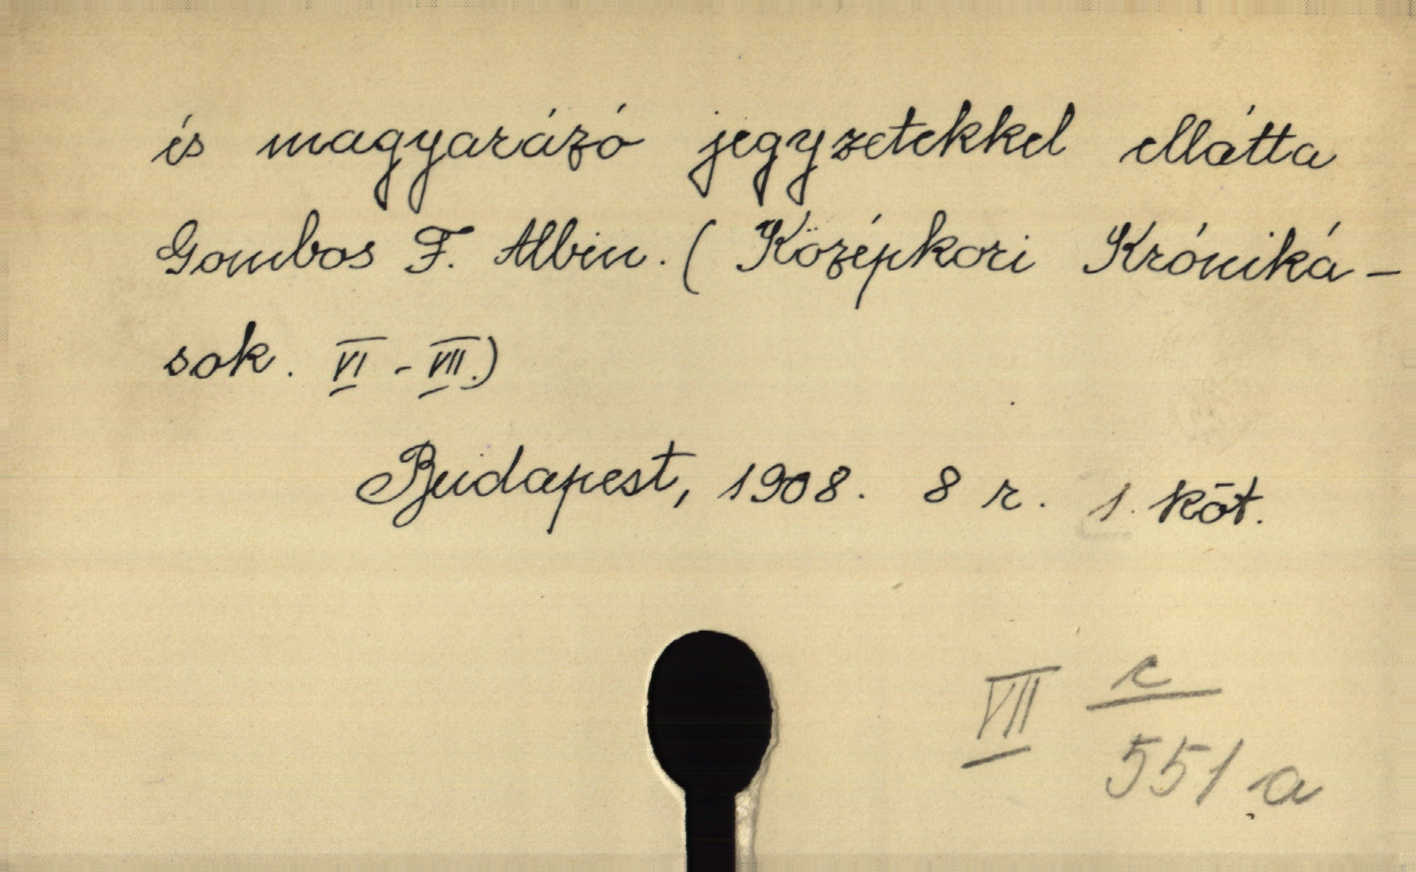 és magyarázó jegyzetekkel ellátta
Gombos F. Albin. (Középkori Króniká-
sok. VI - VII.)
Budapest, 1908. 8 r. 1. köt.
VII c
551 a